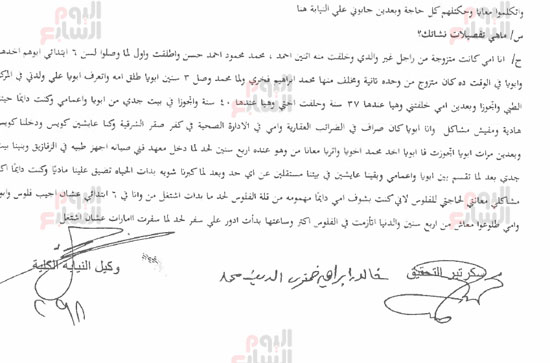 واتكلموا معايا وحكتلهم كل حاجة وبعدين جابوني علي النيابة هنا
س/ ماهي تفصيلات نشائتك؟
ج/ انا امي كانت متزوجة من راجل غير والدي وخلفت منه اتنين احمد ، محمد محمود احمد حسن واطلقت واول لما وصلوا لسن ٦ ابتدائي ابوهم اخدهم
وابويا في الوقت ده كان متزوج من وحده تانية ومخلف منها محمد ابراهيم فخري ولما محمد وصل ٣ سنين ابويا طلق امه واتعرف ابويا علي والدتي في المركز
الطبي واتجوزا وبعدين امي خلفتني وهيا عندها ٣٧ سنة وخلفت اختي وهيا عندها ٤٠ سنة واتجوزا في بيت جدي من ابويا واعمامي وكنت دايما
هادية ومفيش مشاكل وانا ابويا كان صراف في الضرائب العقارية وامي في الادارة الصحية في كفر صقر الشرقية وكنا عايشين كويس ودخلنا كويس
وبعدين مرات ابويا اتجوزت فا ابويا اخد محمد اخويا واتربا معانا من وهو عنده اربع سنين لحد لما دخل معهد فني صيانه اجهزه طبيه في الزقازيق وبنينا بيت
جدي بعد لما تقسم بين ابويا واعمامي وبقينا عايشين في بيتنا مستقلين عن اي حد وبعد لما كبرنا شويه بدات الحياه تضيق علينا ماديًا وكنت دايما
مشاكلي معاناتي لحاجتي للفلوس لاني كنت بشوف امي دايما مهمومه من قلة الفلوس لحد ما بدات اشتغل من وانا في ٦ ابتدائي عشان اجيب فلوس وابويا
وامي طلعوا معاش من اربع سنين والدنيا اتأزمت في الفلوس اكتر وساعتها بدأت ادور علي سفر لحد لما سفرت الامارات عشان اشتغل
سكرتير التحقيق
وكيل النيابة الكلية
اليوم السابع